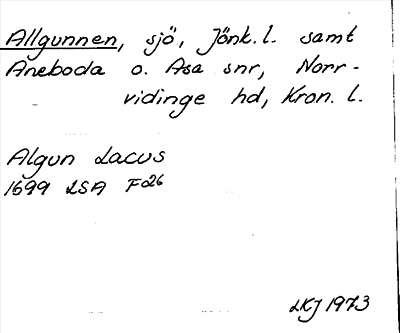 Allgunnen, sjö, Jönk. l. samt
Aneboda o. Asa snr, Norr-
vidinge hd, Kron. l.
Algun Lacus
1699 LSA Fa26
LKJ 1973